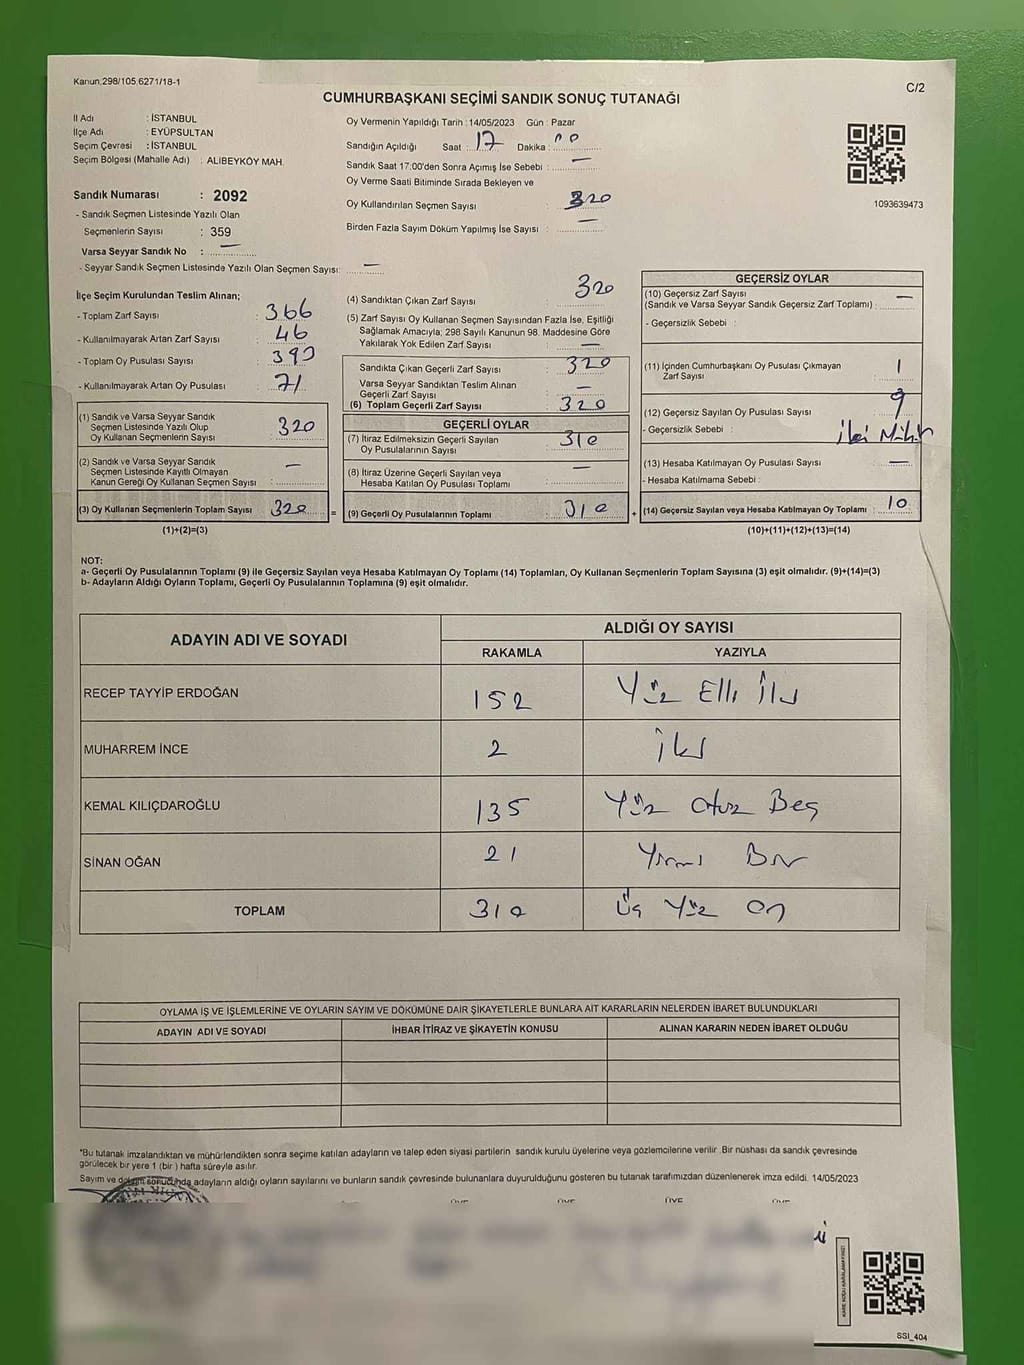 Kanun,298/105,6271/18-1
C/2
CUMHURBAŞKANI SEÇİMİ SANDIK SONUÇ TUTANAĞI
İl Adı : İSTANBUL
İlçe Adı : EYÜPSULTAN
Seçim Çevresi : İSTANBUL
Seçim Bölgesi (Mahalle Adı) : ALİBEYKÖY MAH.
Sandık Numarası : 2092
- Sandık Seçmen Listesinde Yazılı Olan
Seçmenlerin Sayısı : 359
Varsa Seyyar Sandık No : —
- Seyyar Sandık Seçmen Listesinde Yazılı Olan Seçmen Sayısı: —
Oy Vermenin Yapıldığı Tarih : 14/05/2023 Gün : Pazar
Sandığın Açıldığı Saat : 17 Dakika : 00
Sandık Saat 17:00'den Sonra Açımış İse Sebebi : —
Oy Verme Saati Bitiminde Sırada Bekleyen ve
Oy Kullandırılan Seçmen Sayısı : 320
Birden Fazla Sayım Döküm Yapılmış İse Sayısı : —
1093639473
İlçe Seçim Kurulundan Teslim Alınan;
- Toplam Zarf Sayısı : 366
- Kullanılmayarak Artan Zarf Sayısı : 46
- Toplam Oy Pusulası Sayısı :
- Kullanılmayarak Artan Oy Pusulası : 71
(1) Sandık ve Varsa Seyyar Sandık
Seçmen Listesinde Yazılı Olup
Oy Kullanan Seçmenlerin Sayısı : 320
(2) Sandık ve Varsa Seyyar Sandık
Seçmen Listesinde Kayıtlı Olmayan
Kanun Gereği Oy Kullanan Seçmen Sayısı : —
(3) Oy Kullanan Seçmenlerin Toplam Sayısı : 320
(1)+(2)=(3)
=
(4) Sandıktan Çıkan Zarf Sayısı : 320
(5) Zarf Sayısı Oy Kullanan Seçmen Sayısından Fazla İse, Eşitliği
Sağlamak Amacıyla; 298 Sayılı Kanunun 98. Maddesine Göre
Yakılarak Yok Edilen Zarf Sayısı : —
Sandıkta Çıkan Geçerli Zarf Sayısı : 320
Varsa Seyyar Sandıktan Teslim Alınan
Geçerli Zarf Sayısı : —
(6) Toplam Geçerli Zarf Sayısı : 320
GEÇERLİ OYLAR
(7) İtiraz Edilmeksizin Geçerli Sayılan
Oy Pusulalarının Sayısı : 310
(8) İtiraz Üzerine Geçerli Sayılan veya
Hesaba Katılan Oy Pusulaları Toplamı : —
(9) Geçerli Oy Pusulalarının Toplamı : 310
+
GEÇERSİZ OYLAR
(10) Geçersiz Zarf Sayısı
(Sandık ve Varsa Seyyar Sandık Geçersiz Zarf Toplamı) : —
- Geçersizlik Sebebi :
(11) İçinden Cumhurbaşkanı Oy Pusulası Çıkmayan
Zarf Sayısı : 1
(12) Geçersiz Sayılan Oy Pusulası Sayısı : 9
- Geçersizlik Sebebi : İki Mühür
(13) Hesaba Katılmayan Oy Pusulası Sayısı : —
- Hesaba Katılmama Sebebi :
(14) Geçersiz Sayılan veya Hesaba Katılmayan Oy Toplamı : 10
(10)+(11)+(12)+(13)=(14)
NOT:
a- Geçerli Oy Pusulalarının Toplamı (9) ile Geçersiz Sayılan veya Hesaba Katılmayan Oy Toplamı (14) Toplamları, Oy Kullanan Seçmenlerin Toplam Sayısına (3) eşit olmalıdır. (9)+(14)=(3)
b- Adayların Aldığı Oyların Toplamı, Geçerli Oy Pusulalarının Toplamına (9) eşit olmalıdır.
ADAYIN ADI VE SOYADI
ALDIĞI OY SAYISI
RAKAMLA YAZIYLA
RECEP TAYYİP ERDOĞAN 152 Yüz Elli İki
MUHARREM İNCE 2 İki
KEMAL KILIÇDAROĞLU 135 Yüz Otuz Beş
SİNAN OĞAN 21 Yirmi Bir
TOPLAM 310 Üç Yüz On
OYLAMA İŞ VE İŞLEMLERİNE VE OYLARIN SAYIM VE DÖKÜMÜNE DAİR ŞİKAYETLERLE BUNLARA AİT KARARLARIN NELERDEN İBARET BULUNDUKLARI
ADAYIN ADI VE SOYADI İHBAR İTİRAZ VE ŞİKAYETİN KONUSU ALINAN KARARIN NEDEN İBARET OLDUĞU
*Bu tutanak imzalandıktan ve mühürlendikten sonra seçime katılan adayların ve talep eden siyasi partilerin sandık kurulu üyelerine veya gözlemcilerine verilir .Bir nüshası da sandık çevresinde
görülecek bir yere 1 (bir ) hafta süreyle asılır.
Sayım ve döküm sonucunda adayların aldığı oyların sayılarını ve bunların sandık çevresinde bulunanlara duyurulduğunu gösteren bu tutanak tarafımızdan düzenlenerek imza edildi. 14/05/2023
ÜYE ÜYE ÜYE ÜYE
SSI_404